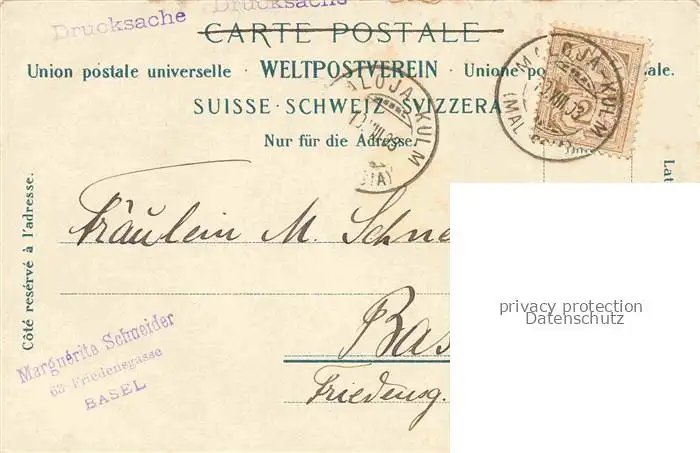 Drucksache Drucksache
CARTE POSTALE
Union postale universelle · WELTPOSTVEREIN · Unione po ale.
SUISSE · SCHWEIZ · SVIZZERA
Nur für die Adresse.
MALOJA-KULM
ALOJA-KULM
Côté reservé à l'adresse.
Lat
Fräulein M. Schne
privacy protection
Datenschutz
Marguérite Schneider
63 Friedensgasse
BASEL
Bas
Friedensg.